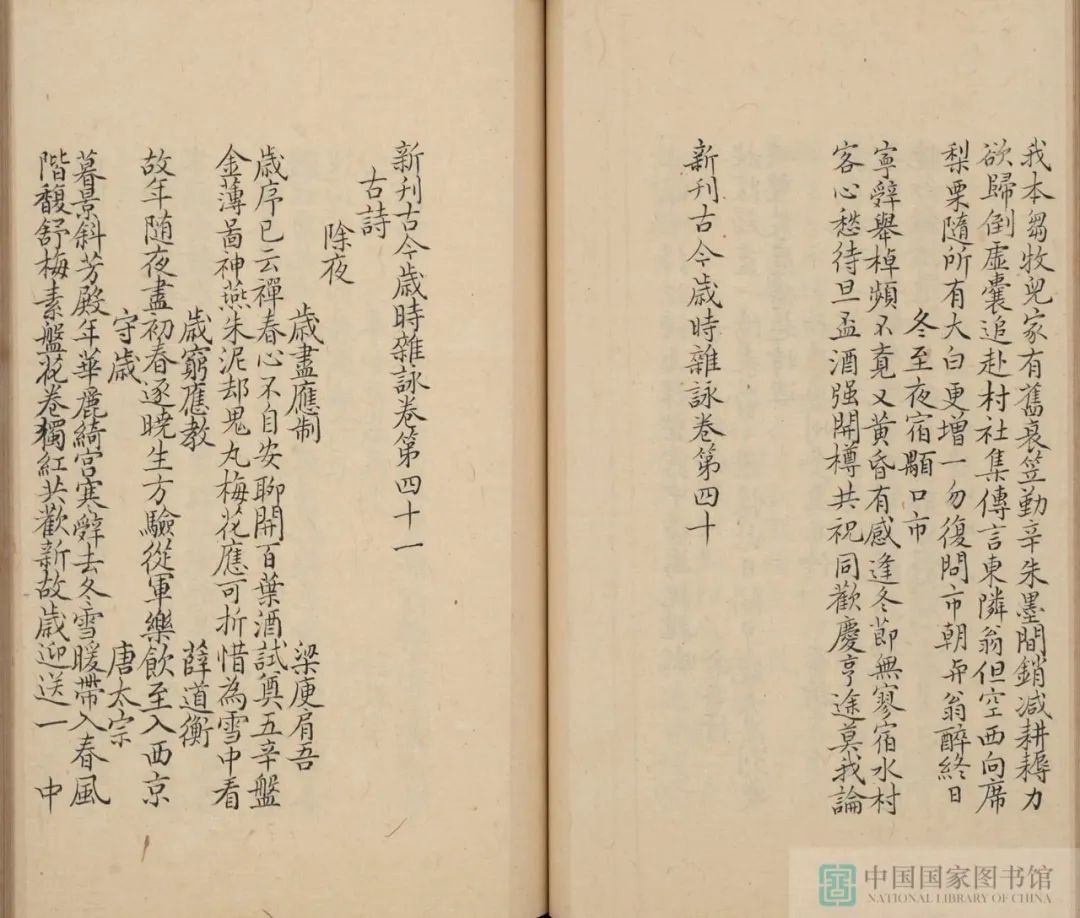 我本芻牧兒家有舊衰笠勤辛朱墨間銷減耕耨力
欲歸倒虛囊追赴村社集傳言東隣翁但空西向席
梨栗隨所有大白更增一勿復問市朝弄翁醉終日
冬至夜宿顒口市
寧辭舉棹頻不竟又黃昏有感逢冬節無寥宿水村
客心愁待旦盃酒强開樽共祝同歡慶亨途莫我論
新刊古今歲時雜詠卷第四十
新刊古今歲時雜詠卷第四十一
古詩
除夜
歲盡應制 梁庾肩吾
歲序已云禪春心不自安聊開百葉酒試奠五辛盤
金薄啚神燕朱泥却鬼丸梅花應可折惜為雪中看
歲窮應教 薛道衡
故年随夜盡初春逐曉生方驗從軍樂飲至入西京
守歲 唐太宗
暮景斜芳殿年華麗綺宮寒辭去冬雪暖帶入春風
階馥舒梅素盤花卷獨紅共歡新故歲迎送一 中
中国国家图书馆
NATIONAL LIBRARY OF CHINA